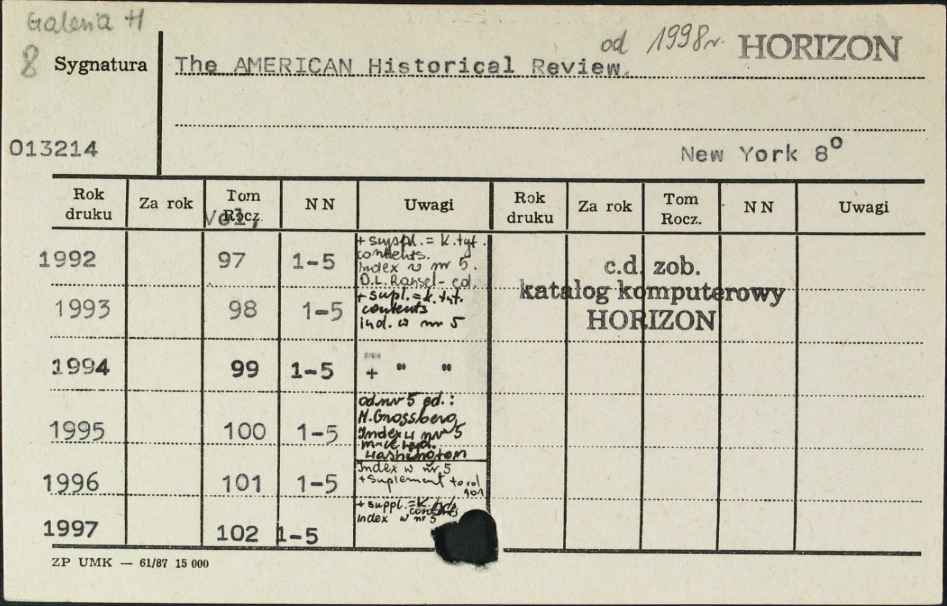 Galeria H
od 1998r. HORIZON
8 Sygnatura The AMERICAN Historical Review.
013214 New York 8º
Rok druku Za rok Tom Rocz. Vol, NN Uwagi Rok druku Za rok Tom Rocz. NN Uwagi
1992 97 1-5 + suppl. = K. tyt.
contents.
Index w nr 5.
D.L. Ransel - ed.
c.d. zob.
katalog komputerowy
HORIZON
1993 98 1-5 + supl. = k. tyt.
contents
ind. w nr 5
1994 99 1-5 + " "
1995 100 1-5 od nr 5 ed.:
M. Grossberg
Index w nr 5
Washington
1996 101 1-5 Index w nr 5
+ suplement to vol
101
1997 102 1-5 + suppl. = K.
contents
index w nr 5
ZP UMK — 61/87 15 000